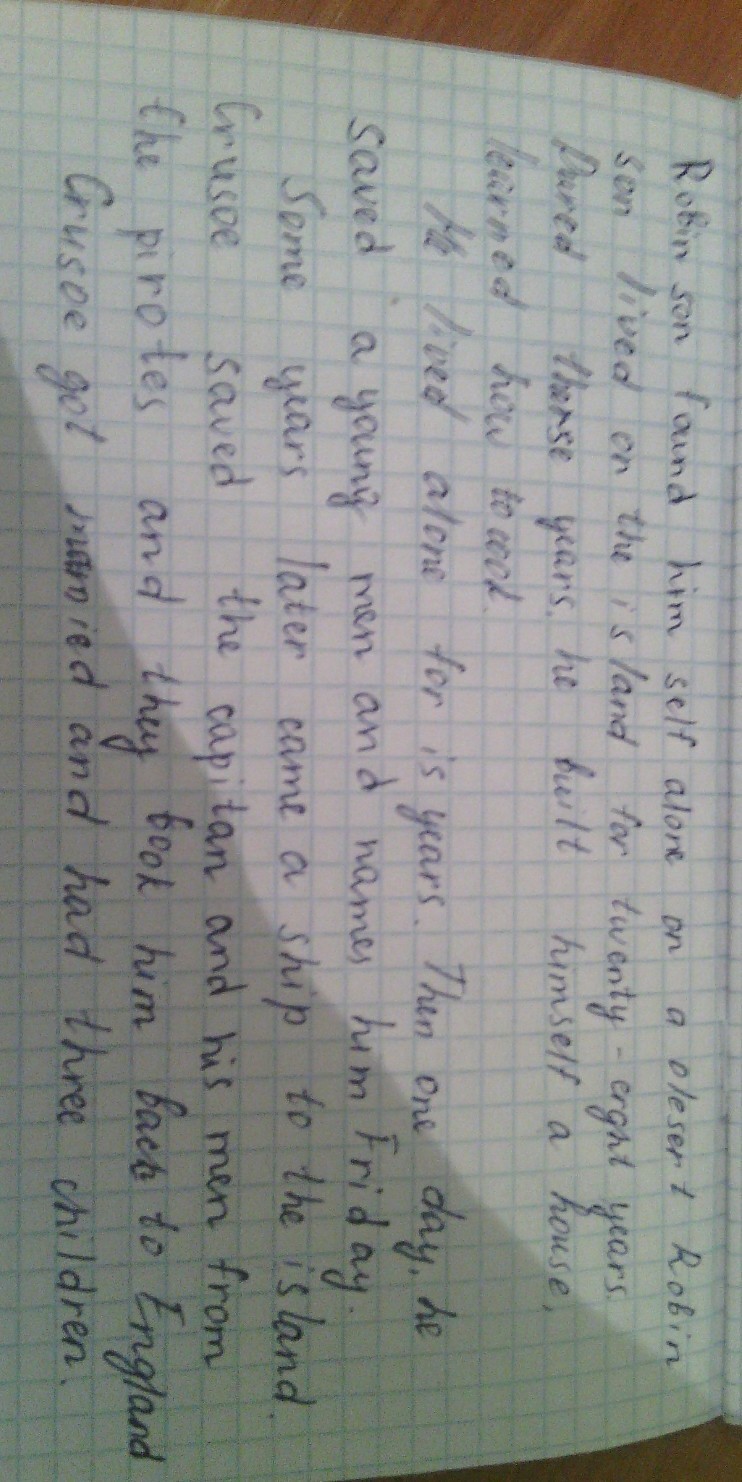 Robin son found him self alone on a olesert Robin
son lived on the island for twenty-erght years.
Dured thense years, he built himself a house,
learned how to cook.
He lived alone for is years. Then one day, he
saved a young men and names him Friday.
Some years later came a ship to the island.
Crusoe saved the capitan and his men from
the pirotes and they book him back to England
Crusoe got married and had three children.